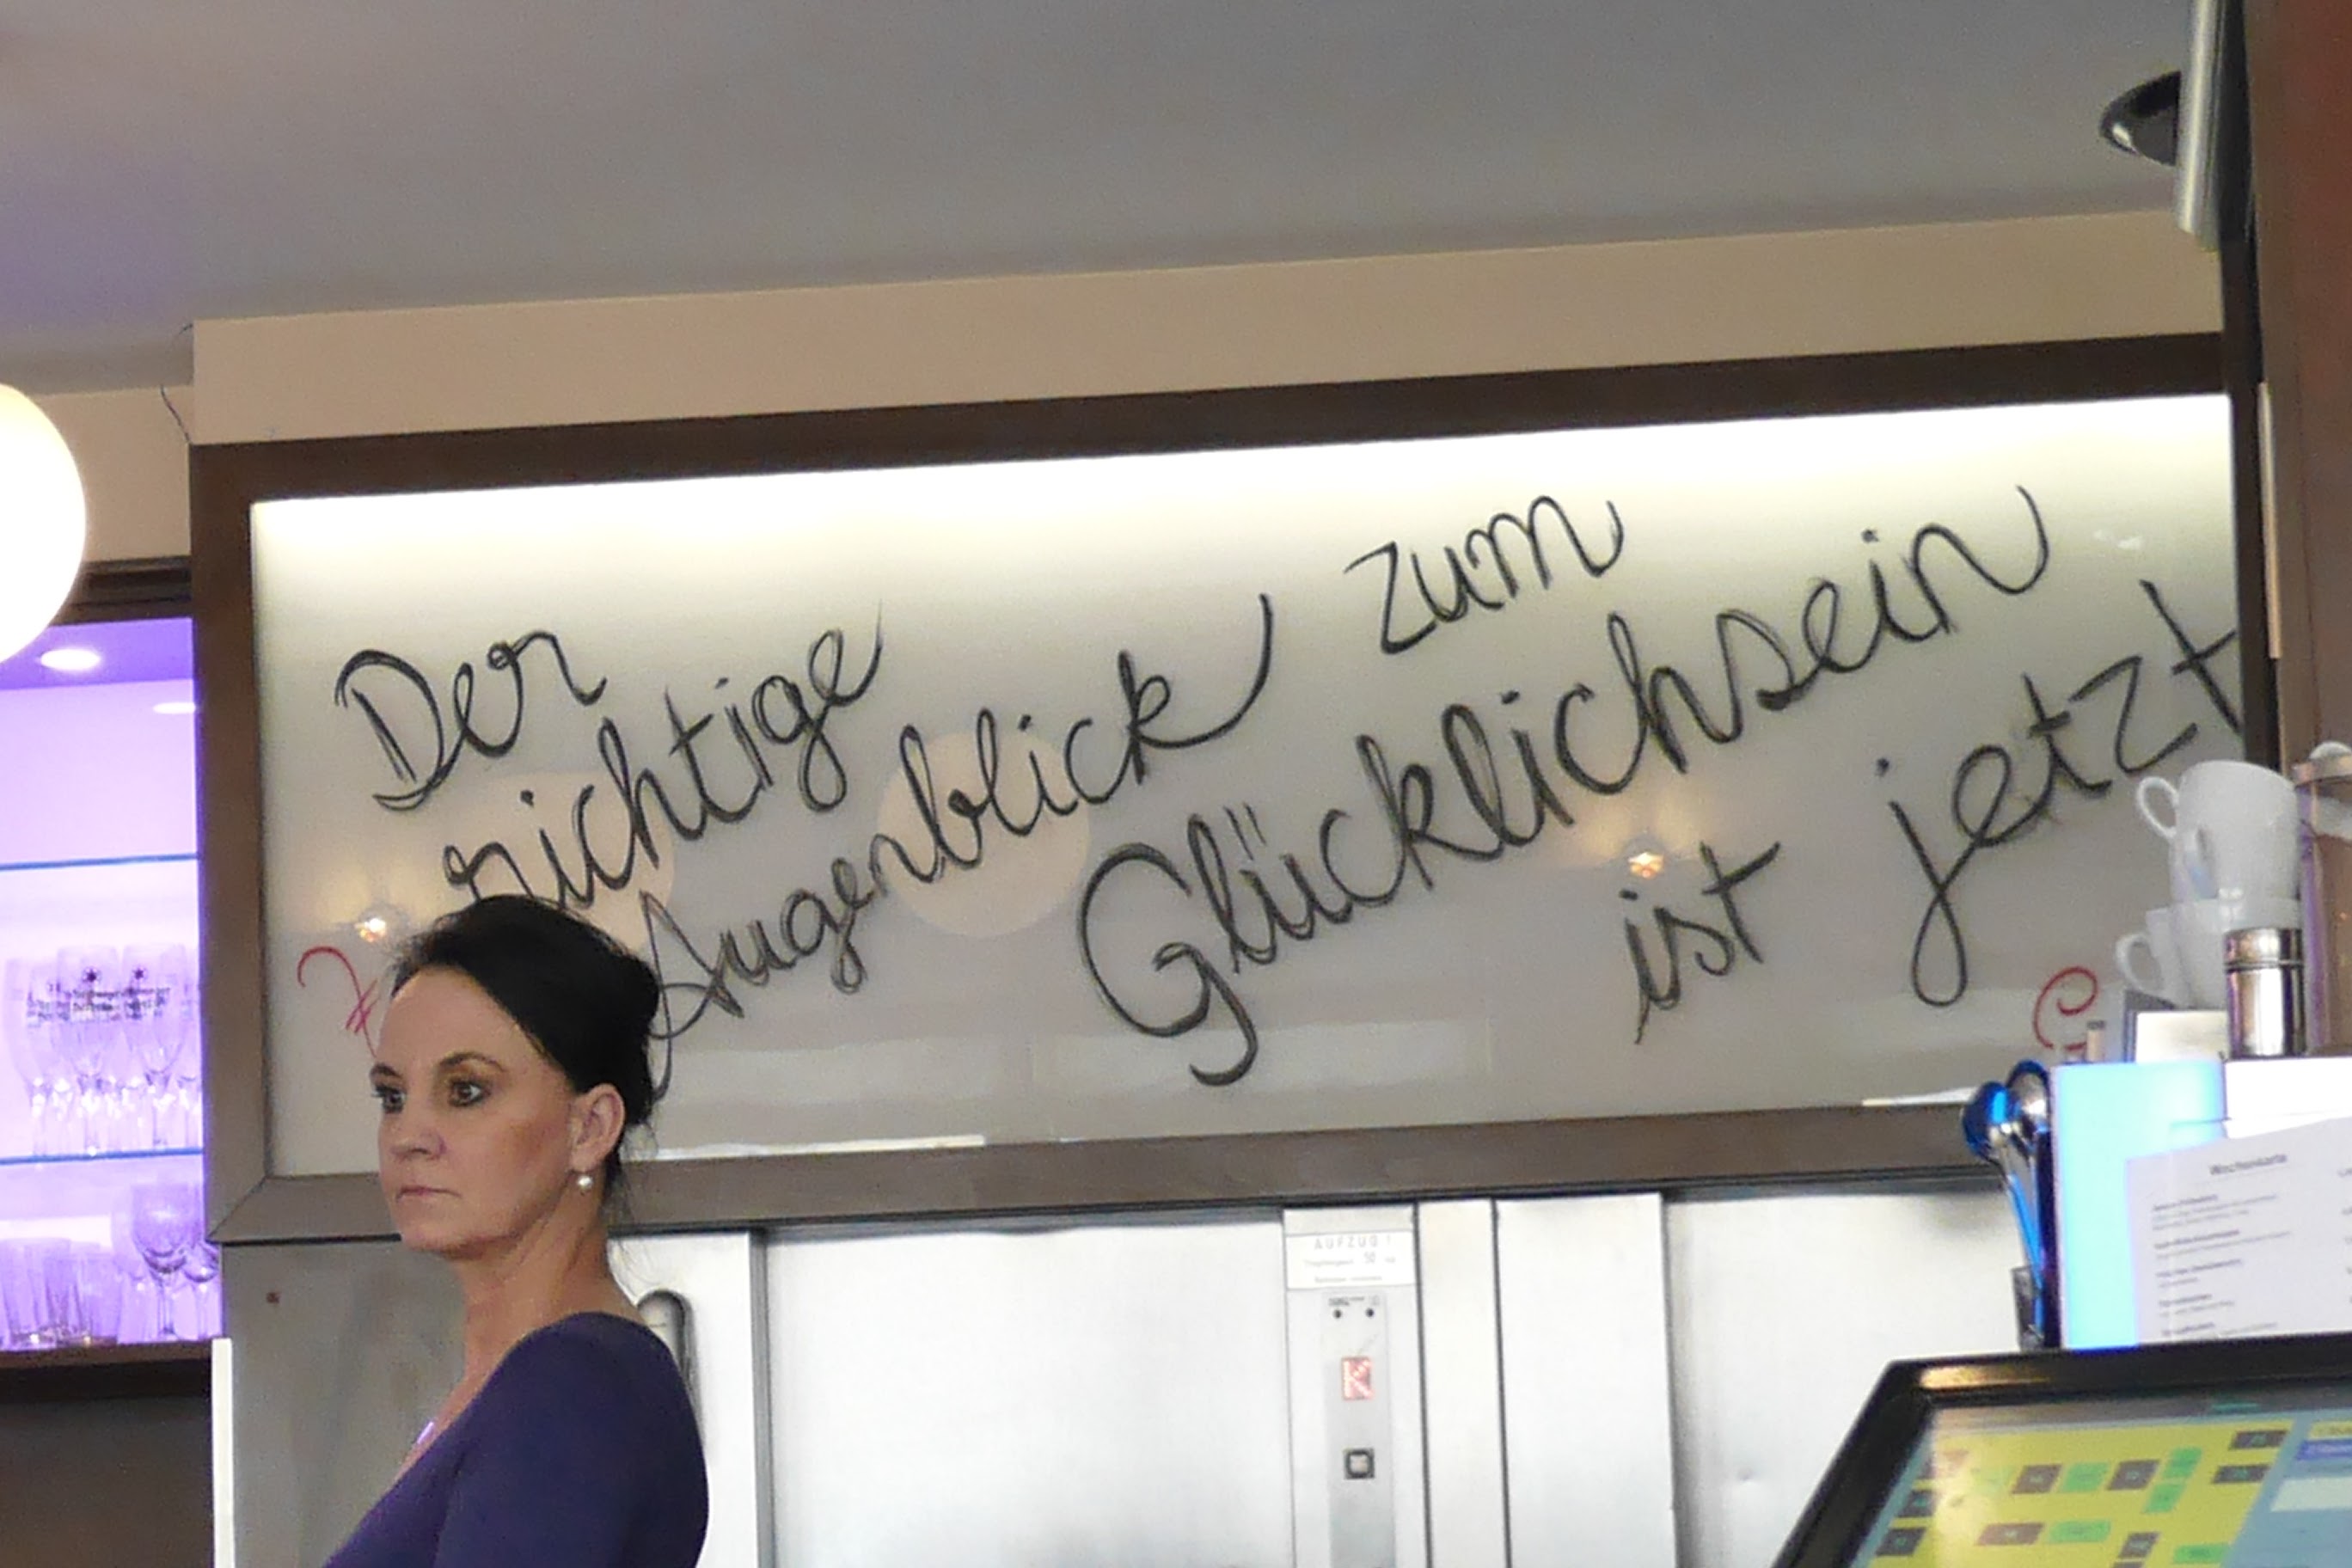 Der
richtige
Augenblick zum
Glücklichsein
ist jetzt
AUFZUG!
K
Wochenkarte